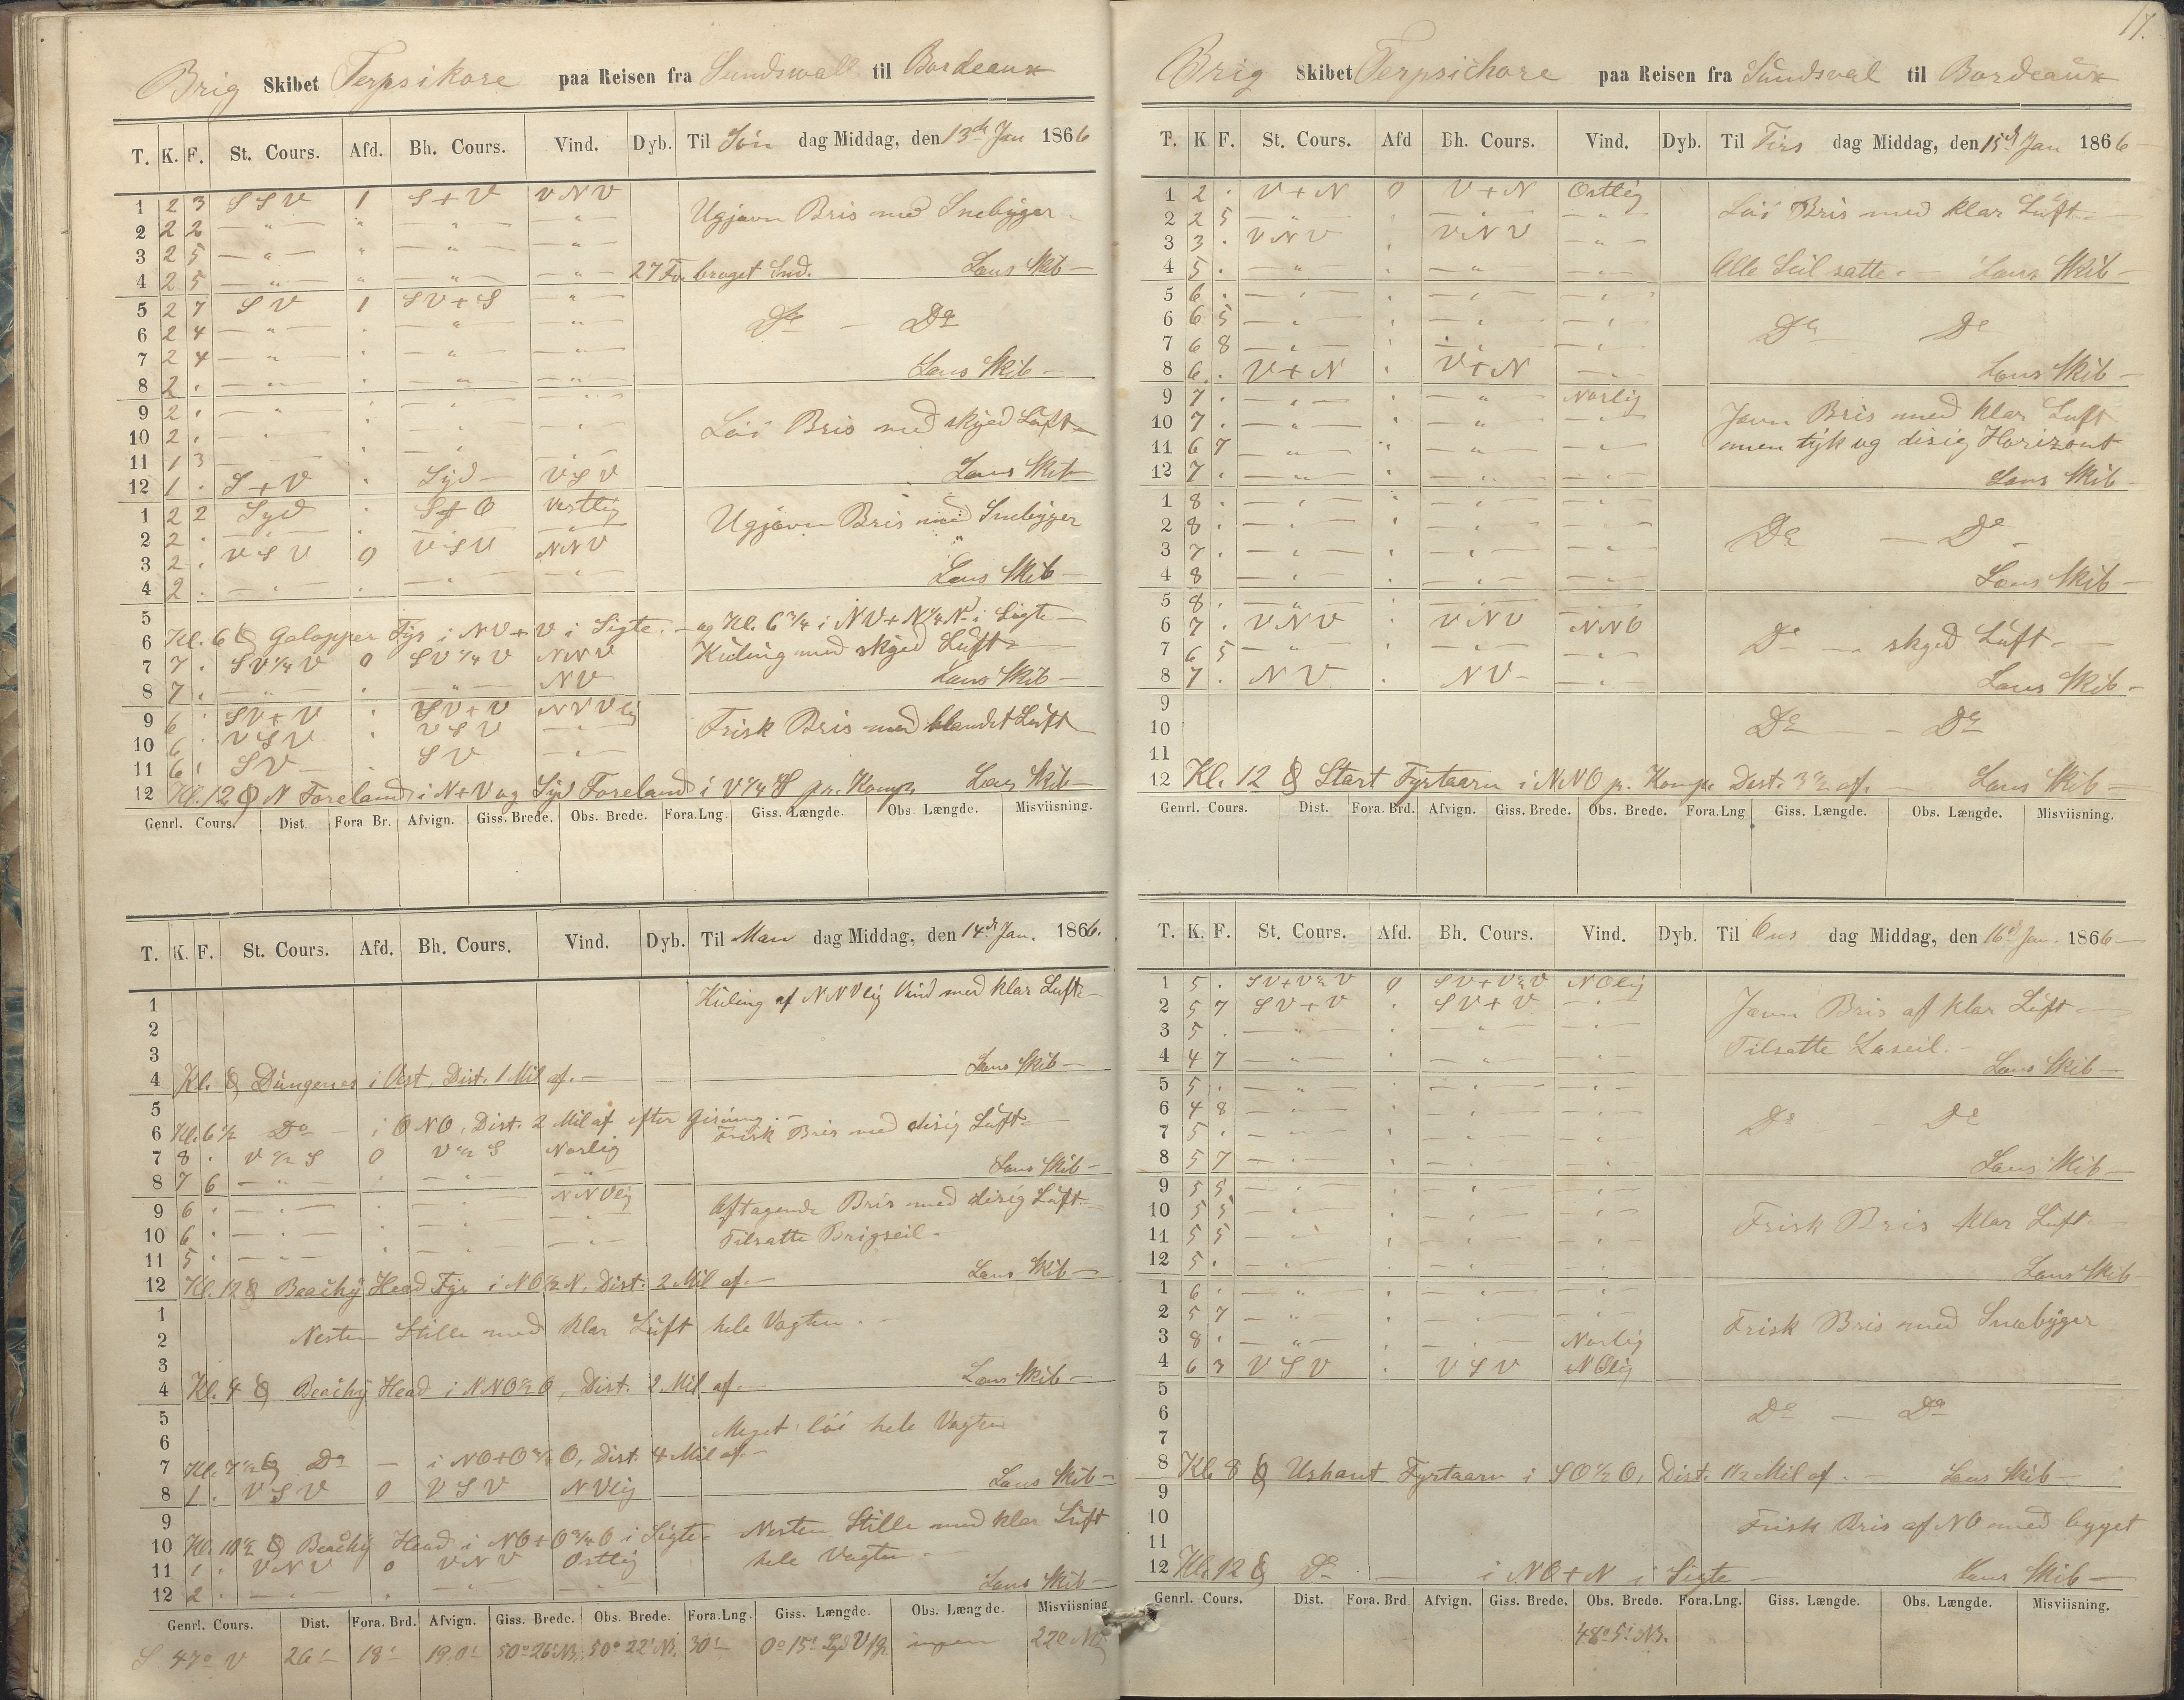 Brig Skibet Terpsikore paa Reisen fra Sundswall til Bordeaux
T. K. F. St. Cours. Afd. Bh. Cours. Vind. Dyb. Til Søn dag Middag, den 13de Jan 1866
1 2 3 SSV 1 S+V VNV
Ugjævn Bris med Snebyger
2 2 2 — " — " — " — — " —
3 2 5 — " — " — " — — " —
4 2 5 — " — " — " — — " — 27 Fv. broget Snd. Lens Skib —
5 2 7 SV 1 SV+S — " —
6 2 4 — " — " — " — — " — Do — Do
7 2 4 — " — " — " — — " —
8 2 . — " — " — " — — " — Lens Skib —
9 2 . — " — " — " — — " —
10 2 . — " — " — " — — " — Løi Bris med skyed Luft
11 1 3 — " — " — " — — " —
12 1 . S+V " Syd — VSV Lens Skib —
1 2 2 Syd " S+O Vestlig Ugjævn Bris med Snebyger
2 2 . — " — " — " — — " —
3 2 . VSV 0 VSV NNV
4 2 . — " — " — " — — " — Lens Skib —
5
6 Kl. 6 Galopper Fyr i NV+V i Sigte. — og Kl. 6 3/4 i NV+N 1/4 N i Sigte —
7 7 . SV 1/4 V 0 SV 1/4 V NNV Kuling med skyed Luft
8 7 . — " — " — " — NV Lens Skib —
9 6 . SV+V " SV+V NNVlig
10 6 . VSV " VSV — " — Frisk Bris med blandet Luft
11 6 . SV — SV — " —
12 Kl. 12 N Foreland i N+V og Syd Foreland i V 1/4 S pr. Komps Lens Skib —
Genrl. Cours. Dist. Fora Br. Afvign. Giss. Brede. Obs. Brede. Fora.Lng. Giss. Længde. Obs. Længde. Misviisning.
T. K. F. St. Cours. Afd. Bh. Cours. Vind. Dyb. Til Man dag Middag, den 14de Jan. 1866.
1 Kuling af NNVlig Vind med klar Luft —
2
3
4 Kl. Dungenes i Vest, Dist. 1 Mil af. — Lens Skib —
5
6 Kl. 6 1/2 Do — i ONO, Dist. 2 Mil af efter Gisning. —
Frisk Bris med disig Luft —
7 8 . V 1/2 S 0 V 1/2 S Norlig
8 7 6 — " — " — " — — " — Lens Skib —
9 6 . — " — " — " — NNVlig Aftagende Bris med disig Luft —
10 6 . — " — " — " — — " — Tilsatte Brigseil —
11 5 . — " — " — " — — " —
12 Kl. 12 Beachy Head Fyr i NO 1/2 N, Dist. 2 Mil af. — Lens Skib —
1
2 Nesten Stille med klar Luft hele Vagten. —
3
4 Kl. 4 Beachy Head i NNO 1/2 O, Dist. 2 Mil af. — Lens Skib —
5 Meget løi hele Vagten
6
7 Kl. 7 1/2 Do — i NO+O 3/4 O, Dist. 4 Mil af. —
8 1 . VSV 0 VSV NVlig Lens Skib —
9
10 Kl. 10 1/2 Beachy Head i NO+O 3/4 O i Sigte. Nesten Stille med klar Luft
11 1 . VNV 0 VNV Ostlig hele Vagten —
12 2 . — " — " — " — — " — Lens Skib —
Genrl. Cours. Dist. Fora. Brd. Afvign. Giss. Brede. Obs. Brede. Fora.Lng. Giss. Længde. Obs. Længde. Misviisning
S 47° V 26' 18' 19.0' 50°26' NB. 50°22' NB. 30' 0°15' ingen 22°
17.
Brig Skibet Terpsichore paa Reisen fra Sundsval til Bordeaux
T. K F. St. Cours. Afd Bh. Cours. Vind. Dyb. Til Tirs dag Middag, den 15de Jan 1866 —
1 2 . V+N 0 V+N Ostlig Løi Bris med klar Luft —
2 2 5 — " — " — " — — " —
3 3 . VNV " VNV — " —
4 5 . — " — " — " — — " — Alle Seil satte. — Lens Skib —
5 6 . — " — " — " — — " —
6 6 5 — " — " — " — — " — Do — Do
7 6 8 — " — " — " — — " —
8 6 . V+N " V+N — " — Lens Skib —
9 7 . — " — " — " — Norlig Jævn Bris med klar Luft
10 7 . — " — " — " — — " —
11 6 7 — " — " — " — — " — men tyk og disig Horizont
12 7 . — " — " — " — — " — Lens Skib —
1 8 . — " — " — " — — " —
2 8 . — " — " — " — — " — Do — Do —
3 7 . — " — " — " — — " —
4 8 — " — " — " — — " — Lens Skib —
5 8 . — " — " — " — — " —
6 7 . VNV " VNV NNO Do — skyed Luft —
7 6 5 — " — " — " — — " —
8 7 . NV " NV — — " — Lens Skib —
9
10 Do — Do
11
12 Kl. 12 Start Fyrtaarn i NNO p. Komps. Dist. 3 1/2 af. — Lens Skib —
Genrl. Cours. Dist. Fora. Brd. Afvign. Giss. Brede. Obs. Brede. Fora.Lng Giss. Længde. Obs. Længde. Misviisning.
T. K. F. St. Cours. Afd. Bh. Cours. Vind. Dyb. Til Ons dag Middag, den 16de Jan. 1866 —
1 5 . SV+V 1/2 V 0 SV+V 1/2 V NOlig
2 5 7 SV+V " SV+V — " — Jævn Bris af klar Luft —
3 5 . — " — " — " — — " —
4 4 7 — " — " — " — — " — Tilsatte Læseil. — Lens Skib —
5 5 . — " — " — " — — " —
6 4 8 — " — " — " — — " — Do — Do
7 5 . — " — " — " — — " —
8 5 7 — " — " — " — — " — Lens Skib —
9 5 5 — " — " — " — — " —
10 5 5 — " — " — " — — " — Frisk Bris klar Luft —
11 5 5 — " — " — " — — " —
12 5 . — " — " — " — — " — Lens Skib
1 6 . — " — " — " — — " —
2 5 7 — " — " — " — — " — Frisk Bris med Snebyger
3 8 . — " — " — " — Norlig
4 6 3 VSV " VSV NOlig
5
6 Do — Do
7
8 Kl. 8 Ushant Fyrtaarn i SO 1/2 O, Dist. 1 1/2 Mil af. — Lens Skib —
9
10 Frisk Bris af NO med bygget
11
12 Kl. 12 Do — i NO+N i Sigte — Lens Skib —
Genrl. Cours. Dist. Fora. Brd. Afvign. Giss. Brede. Obs. Brede. Fora.Lng. Giss. Længde. Obs. Længde. Misviisning.
48°5' NB.